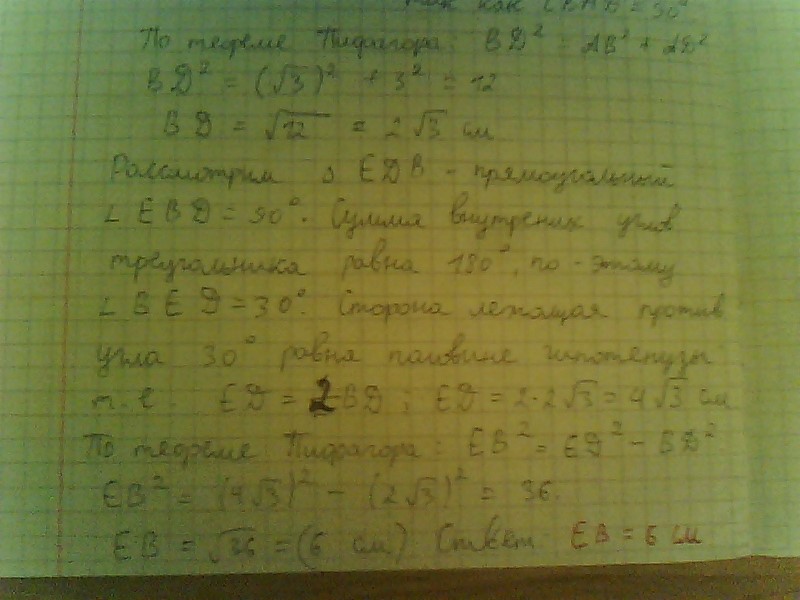 так как ∠BAD = 90°
По теореме Пифагора: BD² = AB² + AD²
BD² = (√3)² + 3² = 12
BD = √12 = 2√3 см
Рассмотрим △ EDB - прямоугольный
∠ EBD = 90°. Сумма внутрених углов
треугольника равна 180°, по-этому
∠ BED = 30°. Сторона лежащая против
угла 30° равна половине гипотенузы
т.е. ED = 2BD; ED = 2·2√3 = 4√3 см
По теореме Пифагора: EB² = ED² - BD²
EB² = (4√3)² - (2√3)² = 36.
EB = √36 = (6 см) Ответ: EB = 6 см